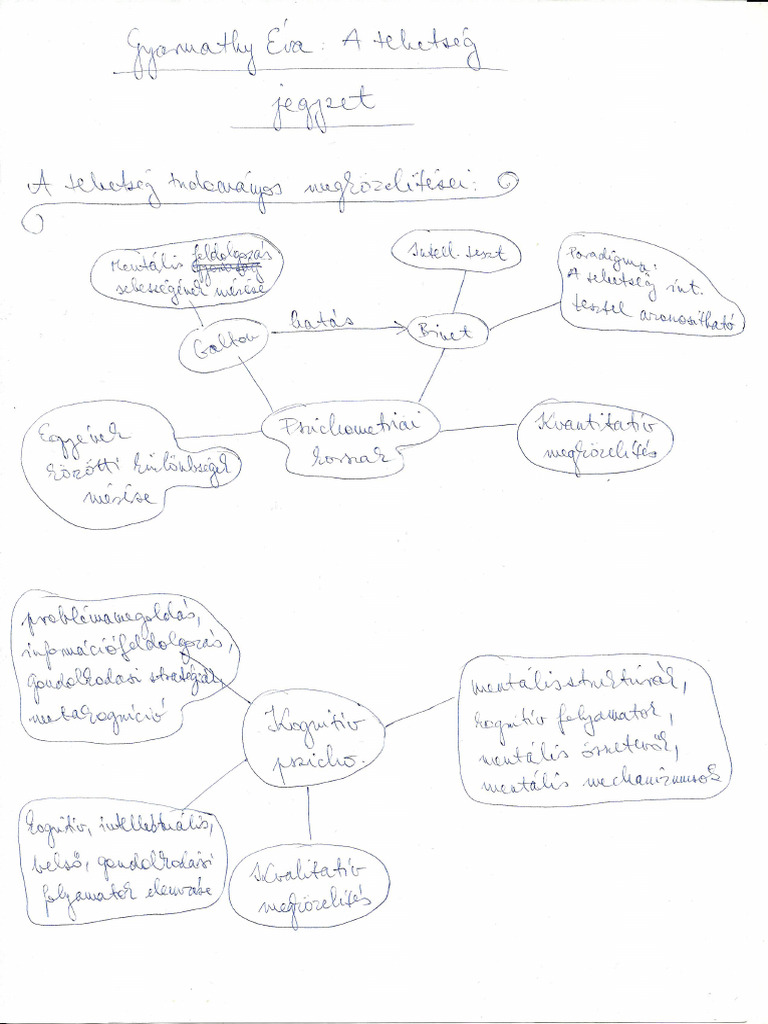 Gyarmathy Éva: A tehetség
jegyzet
A tehetség tudományos megközelítései:
Mentális feldolgozás
sebességének mérése
Intell. teszt
Paradigma:
A tehetség int.
tesztel azonosítható
Galton
hatás
Binet
Egyének
közötti különbségek
mérése
Pszichometriai
korszak
Kvantitatív
megközelítés
problémamegoldás,
információfeldolgozás,
gondolkodási stratégiák,
metakogníció
Kognitív
pszicho.
mentális struktúrák,
kognitív folyamatok,
mentális összetevők,
mentális mechanizmusok
kognitív, intellektuális,
belső, gondolkodási
folyamatok elemzése
Kvalitatív
megközelítés